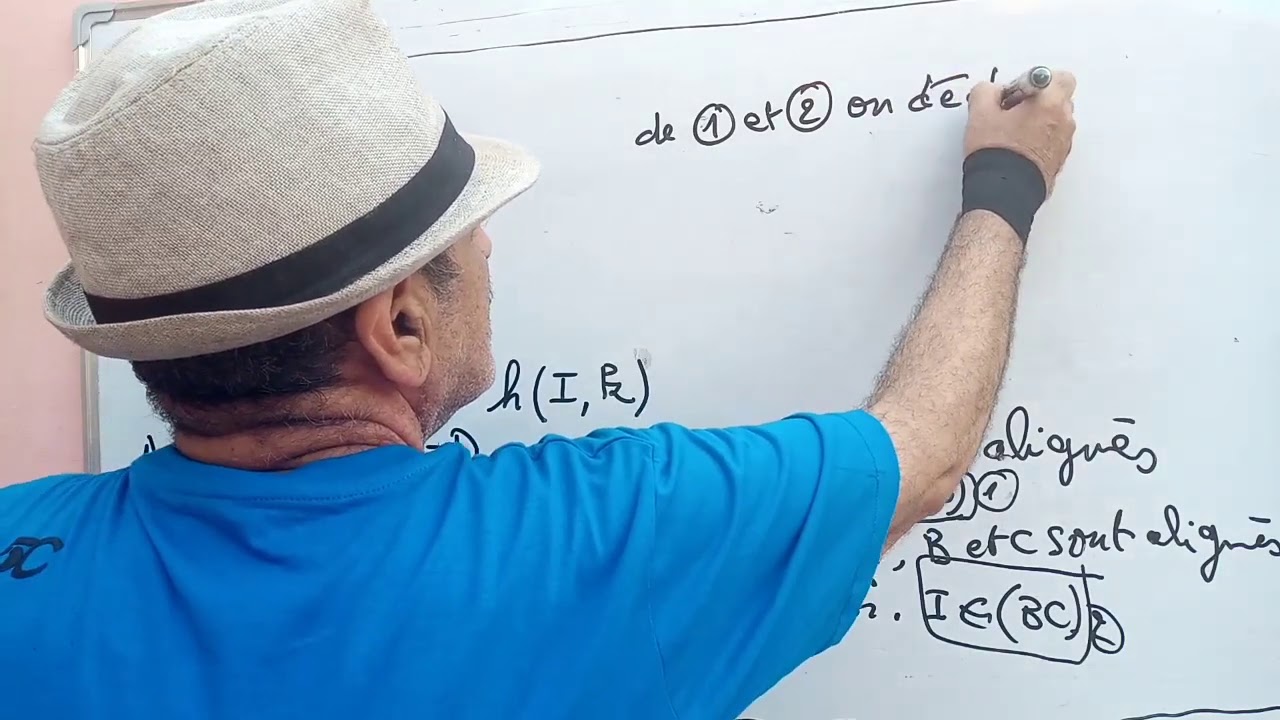 de ① et ② on dé
h(I, k)
alignés
①
B et C sont alignés
I ∈ (BC) ②